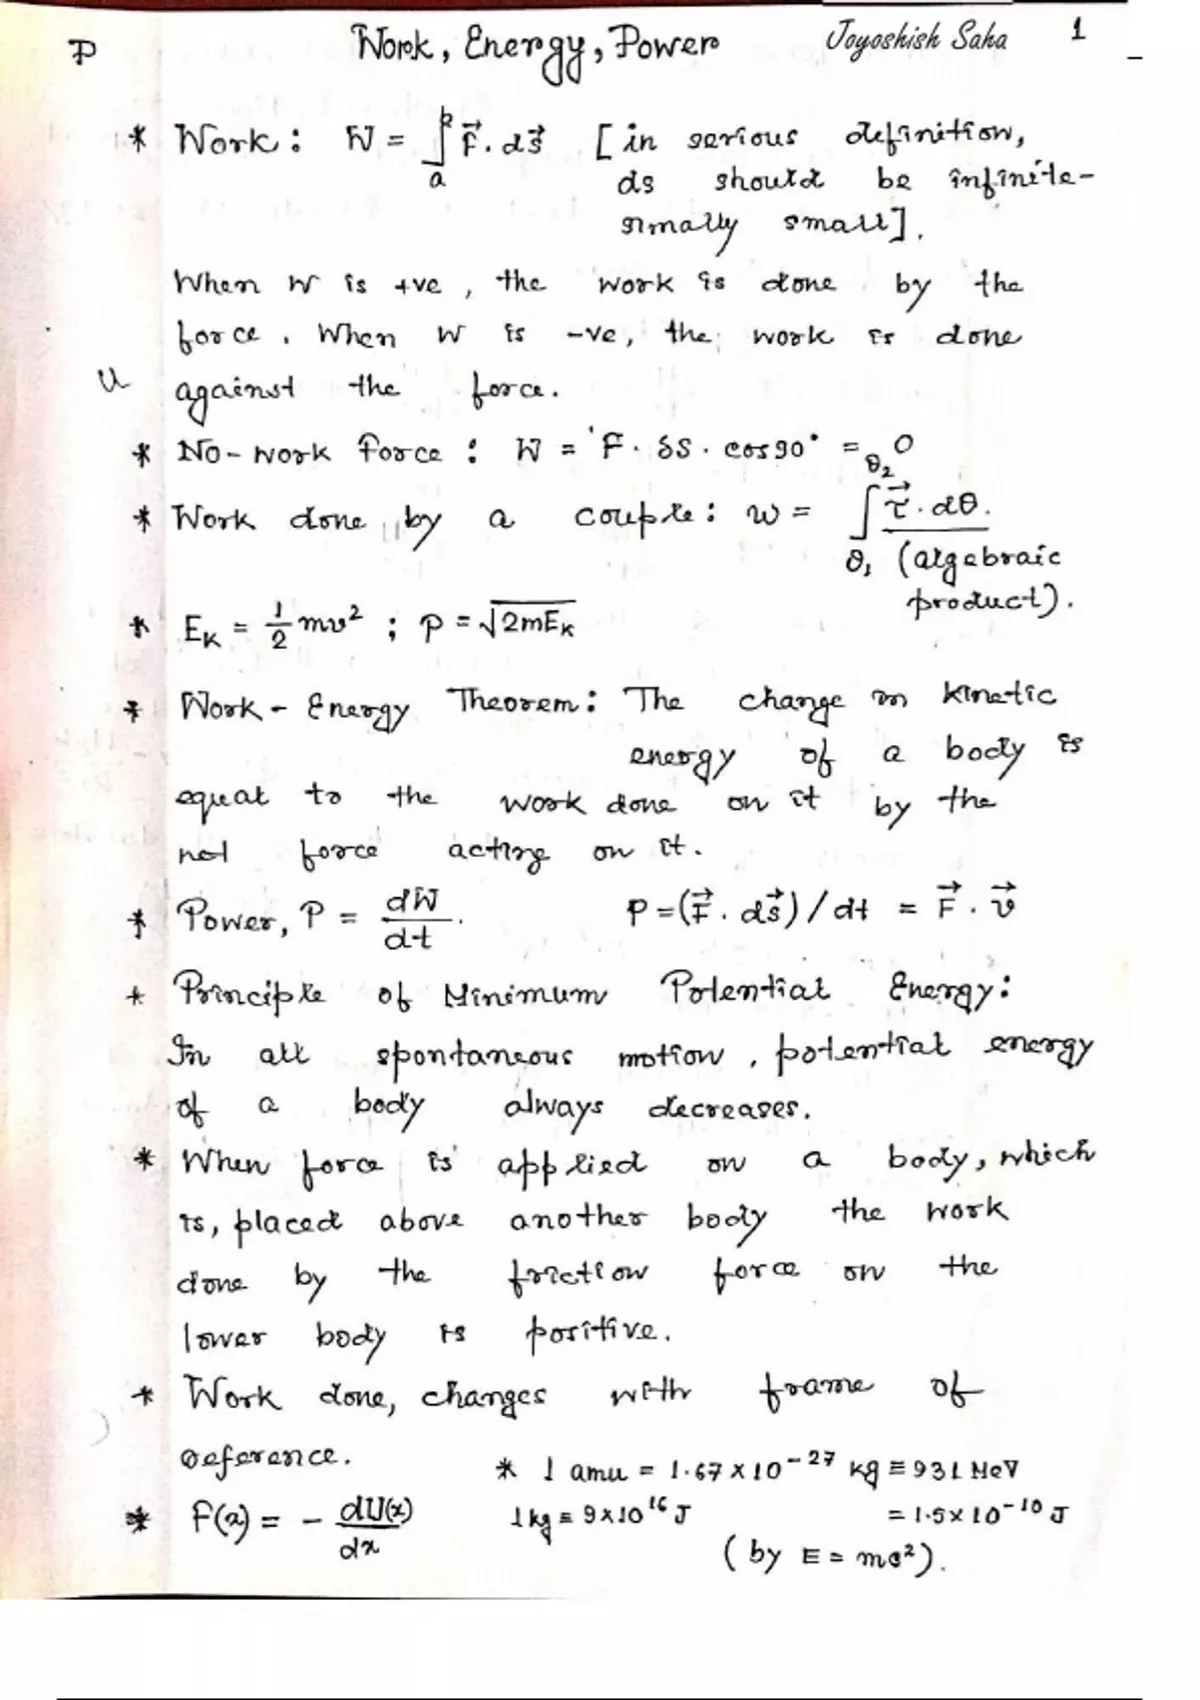 P Work, Energy, Power Joyoshish Saha 1
* Work: W = ∫ₐᵇ F⃗. ds⃗ [in serious definition,
ds should be infinite-
simally small].
When W is +ve, the work is done by the
force. When W is -ve, the work is done
u against the force.
* No-work force: W = F. δS. cos90° = 0
* Work done by a couple: w = ∫ τ⃗. dθ.
θ₂
θ₁ (algebraic
product).
* Eₖ = 1/2 mv² ; p = √2mEₖ
* Work-Energy Theorem: The change in kinetic
energy of a body is
equal to the work done on it by the
net force acting on it.
* Power, P = dW/dt. P = (F⃗. ds⃗)/dt = F⃗. v⃗
* Principle of Minimum Potential Energy:
In all spontaneous motion, potential energy
of a body always decreases.
* When force is applied on a body, which
is, placed above another body the work
done by the friction force on the
lower body is positive.
* Work done, changes with frame of
reference. * 1 amu = 1.67 x 10⁻²⁷ kg ≡ 931 MeV
* F(x) = - dU(x)/dx 1kg ≡ 9x10¹⁶ J = 1.5x10⁻¹⁰ J
(by E = mc²).